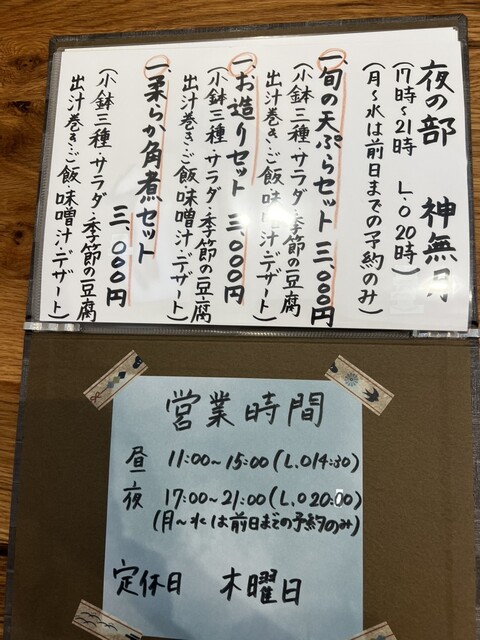 夜の部　神無月
(17時〜21時　L.O 20時)
(月〜水は前日までの予約のみ)
一、旬の天ぷらセット 三、000円
(小鉢三種・サラダ・季節の豆腐
出汁巻き・ご飯・味噌汁・デザート)
一、お造りセット 三、000円
(小鉢三種・サラダ・季節の豆腐
出汁巻き・ご飯・味噌汁・デザート)
一、柔らか角煮セット
三、000円
(小鉢三種・サラダ・季節の豆腐
出汁巻き・ご飯・味噌汁・デザート)
営業時間
昼　11:00〜15:00(L.O14:30)
夜　17:00〜21:00(L.O 20:00)
(月〜水は前日までの予約のみ)
定休日　木曜日